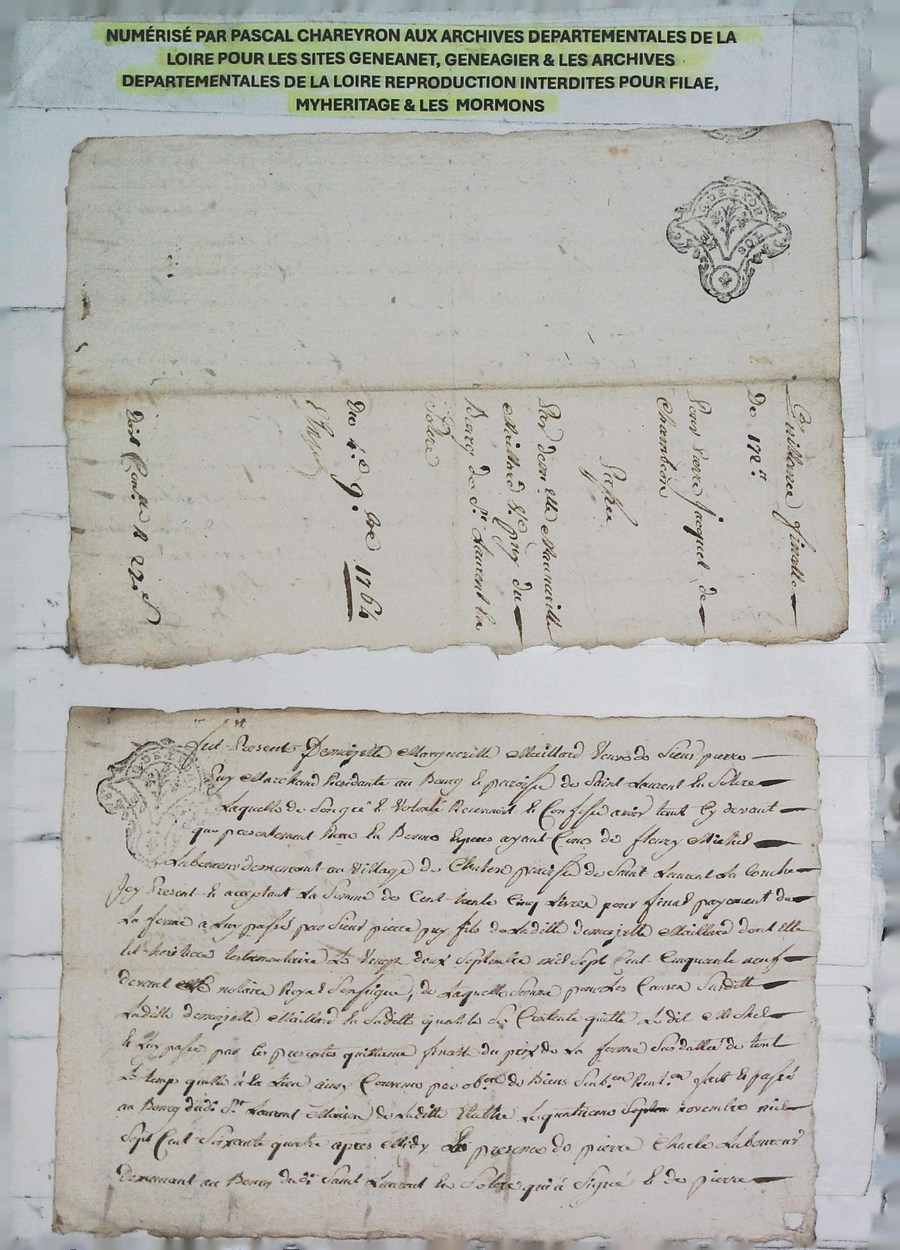 NUMÉRISÉ PAR PASCAL CHAREYRON AUX ARCHIVES DEPARTEMENTALES DE LA
LOIRE POUR LES SITES GENEANET, GENEAGIER & LES ARCHIVES
DEPARTEMENTALES DE LA LOIRE REPRODUCTION INTERDITES POUR FILAE,
MYHERITAGE & LES MORMONS
G. DE LYON
Quittance finalle
De 172
Pour pierre jacquet de
Chambeon
Passée
Par demlle Margueritte
Maillard Ve puy du
Bourg de St Laurent la
Solve
Du 4e 9bre 1764
Fut Present Demoizelle Margueritte Maillard Veuve de Sieur pierre
Puy Marchand Residante au Bourg & paroisse de Saint Laurent la Solve
Laquelle de Son gré & Volonté Reconnoit & Confesse avoir tant cy devant
que presentement Recu de fleury Michel
Laboureur demeurant au Village de paroisse de Saint Laurent La Conche
Icy Present & acceptant La Somme de Cent trente Cinq Livres pour final payement de
La ferme a Luy passé par Sieur pierre puy fils de Laditte demoizelle Maillard dont Elle
Est heritiere testamentaire Le Vingt deux Septembre mil Sept Cent Cinquante neuf
devant notaire Royal Soussigné, de Laquelle Somme pour Les Causes Susditte
Laditte demoizelle Maillard En Saditte qualité Se Contente quitte Le dit Michel
& Luy passe par les presentes quittance finalle du prix de La ferme de tout
Le temps ainsy Convenu par obon de Biens fait & passé
au Bourg dudt St Laurent Maison de Laditte Le quatrieme novembre mil
Sept Cent Soixante quatre apres Midy En presence de pierre Laboureur
Demeurant au Bourg dudt Saint Laurent la Solve qui a Signé & de pierre